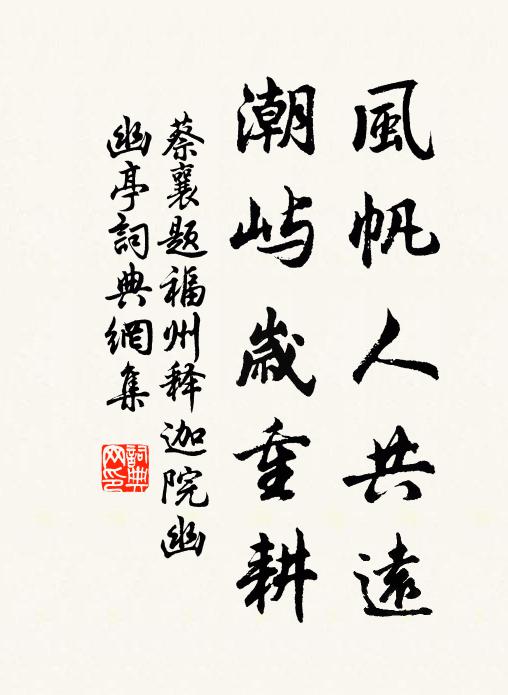 風帆人共遠
潮嶼歲重耕
蔡襄題福州释迦院幽
幽亭詞典網集
詞典网印